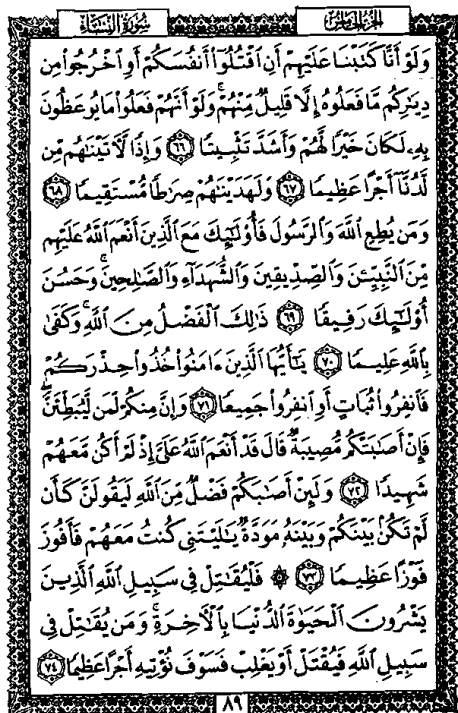 الجزء الخامس
سورة النساء
وَلَوْ أَنَّا كَتَبْنَا عَلَيْهِمْ أَنِ ٱقْتُلُوٓا۟ أَنفُسَكُمْ أَوِ ٱخْرُجُوا۟ مِن
دِيَـٰرِكُم مَّا فَعَلُوهُ إِلَّا قَلِيلٌ مِّنْهُمْ ۖ وَلَوْ أَنَّهُمْ فَعَلُوا۟ مَا يُوعَظُونَ
بِهِۦ لَكَانَ خَيْرًا لَّهُمْ وَأَشَدَّ تَثْبِيتًا ٦٦ وَإِذًا لَّـَٔاتَيْنَـٰهُم مِّن
لَّدُنَّآ أَجْرًا عَظِيمًا ٦٧ وَلَهَدَيْنَـٰهُمْ صِرَٰطًا مُّسْتَقِيمًا ٦٨
وَمَن يُطِعِ ٱللَّهَ وَٱلرَّسُولَ فَأُو۟لَـٰٓئِكَ مَعَ ٱلَّذِينَ أَنْعَمَ ٱللَّهُ عَلَيْهِم
مِّنَ ٱلنَّبِيِّـۧنَ وَٱلصِّدِّيقِينَ وَٱلشُّهَدَآءِ وَٱلصَّـٰلِحِينَ ۚ وَحَسُنَ
أُو۟لَـٰٓئِكَ رَفِيقًا ٦٩ ذَٰلِكَ ٱلْفَضْلُ مِنَ ٱللَّهِ ۚ وَكَفَىٰ
بِٱللَّهِ عَلِيمًا ٧٠ يَـٰٓأَيُّهَا ٱلَّذِينَ ءَامَنُوا۟ خُذُوا۟ حِذْرَكُمْ
فَٱنفِرُوا۟ ثُبَاتٍ أَوِ ٱنفِرُوا۟ جَمِيعًا ٧١ وَإِنَّ مِنكُمْ لَمَن لَّيُبَطِّئَنَّ
فَإِنْ أَصَـٰبَتْكُم مُّصِيبَةٌ قَالَ قَدْ أَنْعَمَ ٱللَّهُ عَلَىَّ إِذْ لَمْ أَكُن مَّعَهُمْ
شَهِيدًا ٧٢ وَلَئِنْ أَصَـٰبَكُمْ فَضْلٌ مِّنَ ٱللَّهِ لَيَقُولَنَّ كَأَن
لَّمْ تَكُنۢ بَيْنَكُمْ وَبَيْنَهُۥ مَوَدَّةٌ يَـٰلَيْتَنِى كُنتُ مَعَهُمْ فَأَفُوزَ
فَوْزًا عَظِيمًا ٧٣ ۞ فَلْيُقَـٰتِلْ فِى سَبِيلِ ٱللَّهِ ٱلَّذِينَ
يَشْرُونَ ٱلْحَيَوٰةَ ٱلدُّنْيَا بِٱلْـَٔاخِرَةِ ۚ وَمَن يُقَـٰتِلْ فِى
سَبِيلِ ٱللَّهِ فَيُقْتَلْ أَوْ يَغْلِبْ فَسَوْفَ نُؤْتِيهِ أَجْرًا عَظِيمًا ٧٤
٨٩